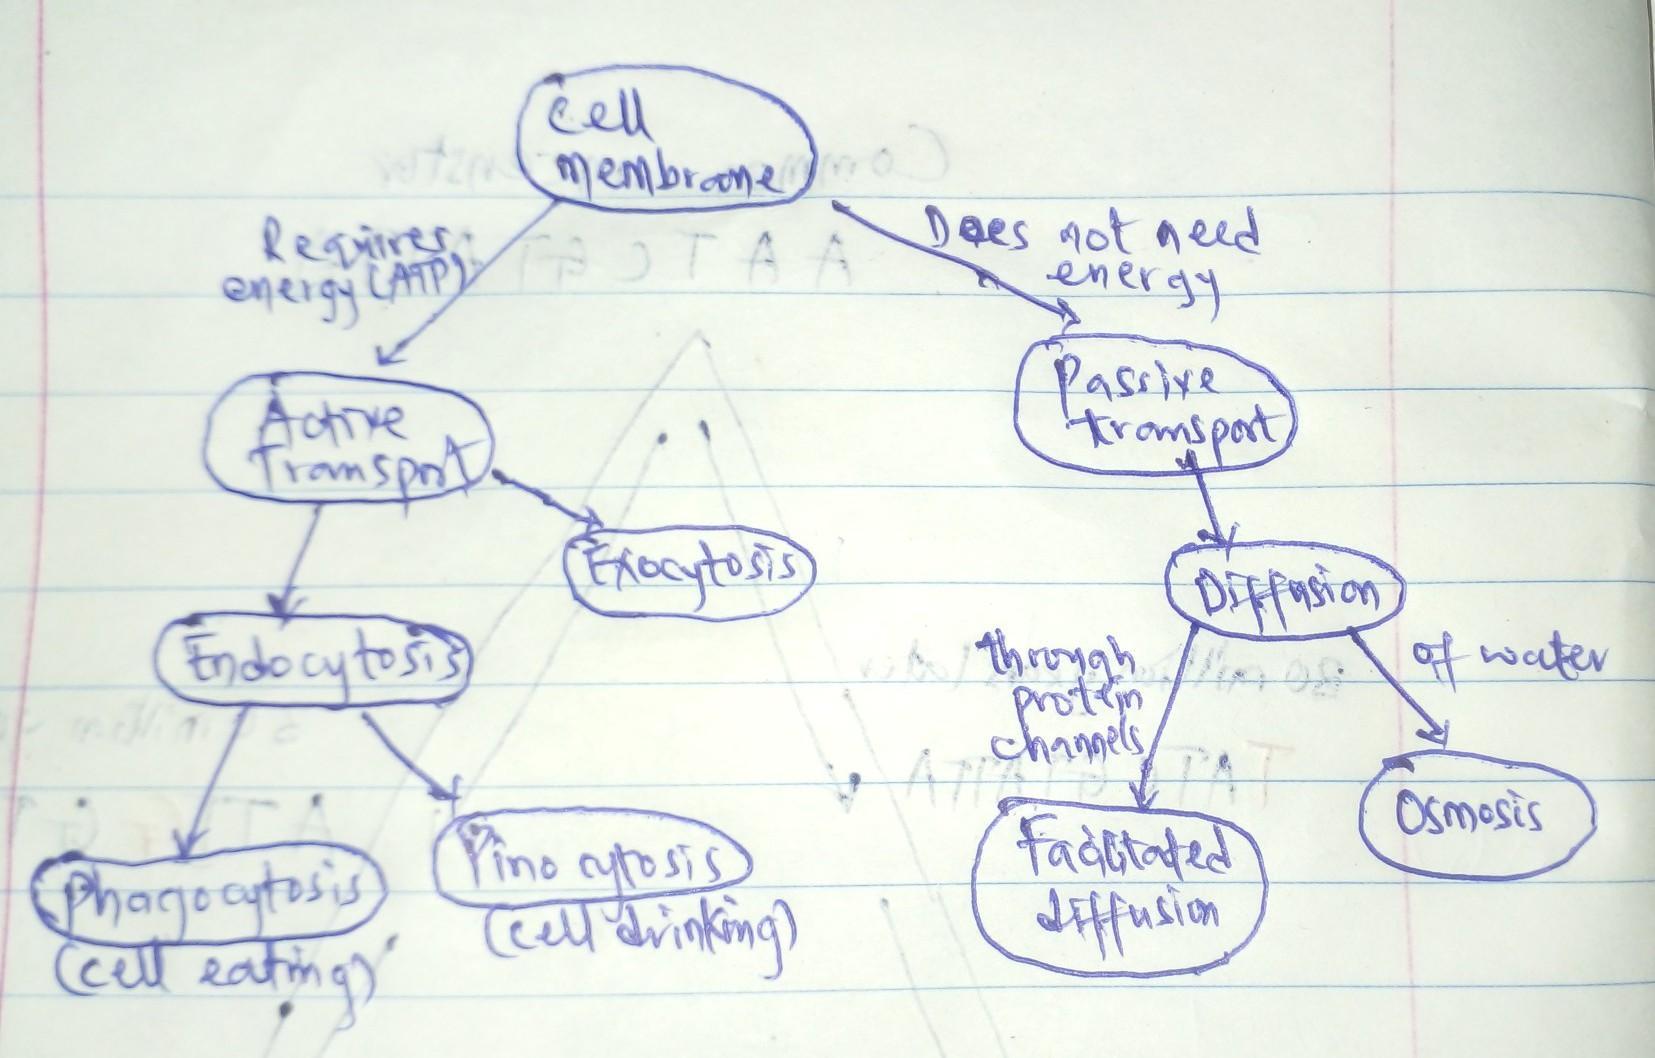 Cell
membrane
Requires
energy (ATP)
Does not need
energy
Active
Transport
Passive
transport
Exocytosis
Diffusion
Endocytosis
through
protein
channels
of water
Phagocytosis
(cell eating)
Pinocytosis
(cell drinking)
Facilitated
diffusion
Osmosis